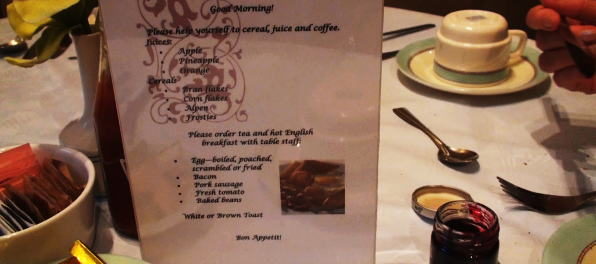 Good Morning!
Please help yourself to cereal, juice and coffee.
Juices:
• Apple
• Pineapple
• Orange
Cereals
• Bran flakes
• Corn flakes
• Alpen
• Frosties
Please order tea and hot English
breakfast with table staff:
• Egg—boiled, poached,
scrambled or fried
• Bacon
• Pork sausage
• Fresh tomato
• Baked beans
White or Brown Toast
Bon Appetit!